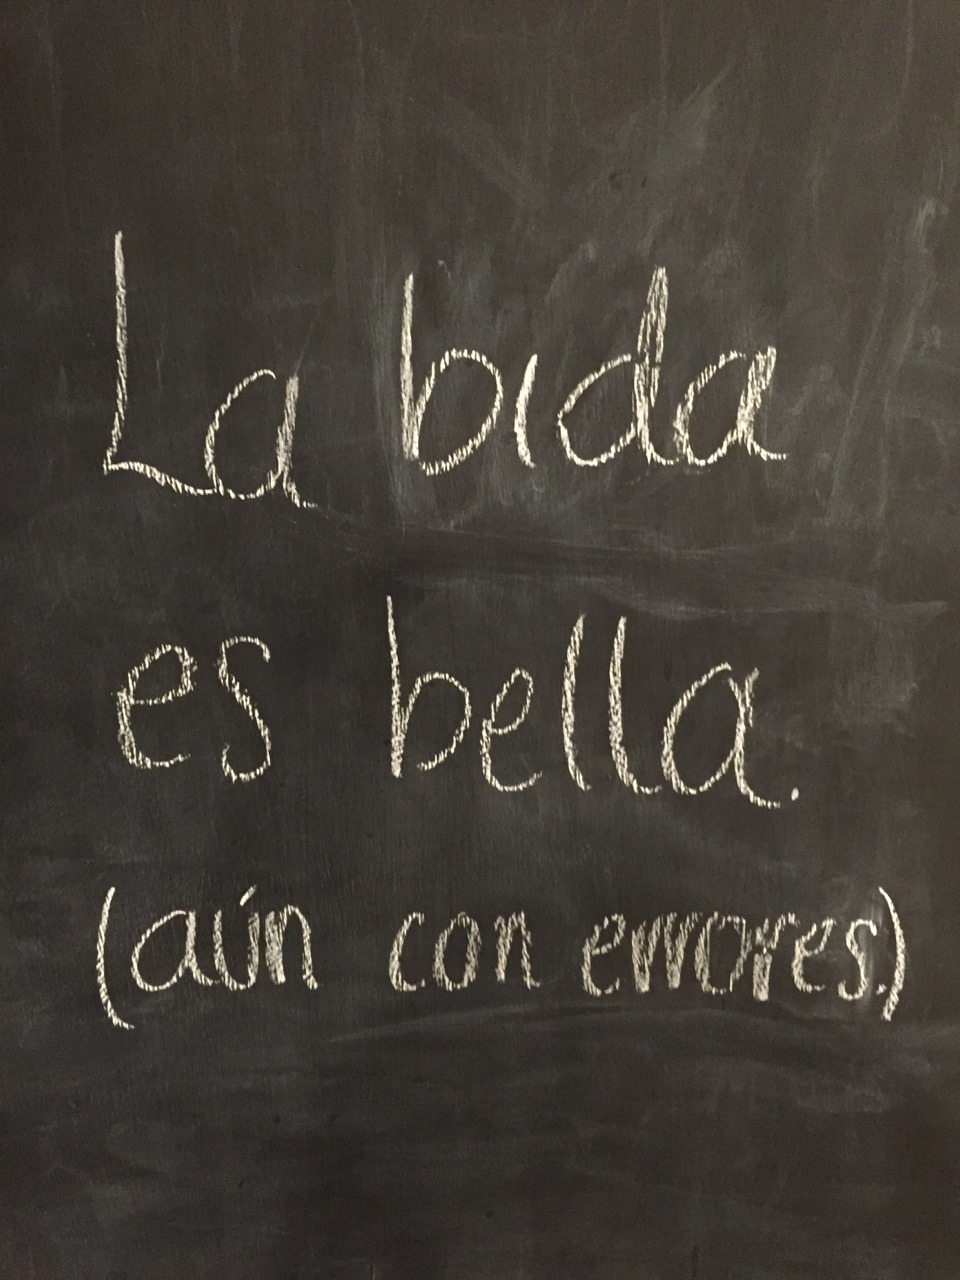 La bida
es bella.
(aún con errores.)